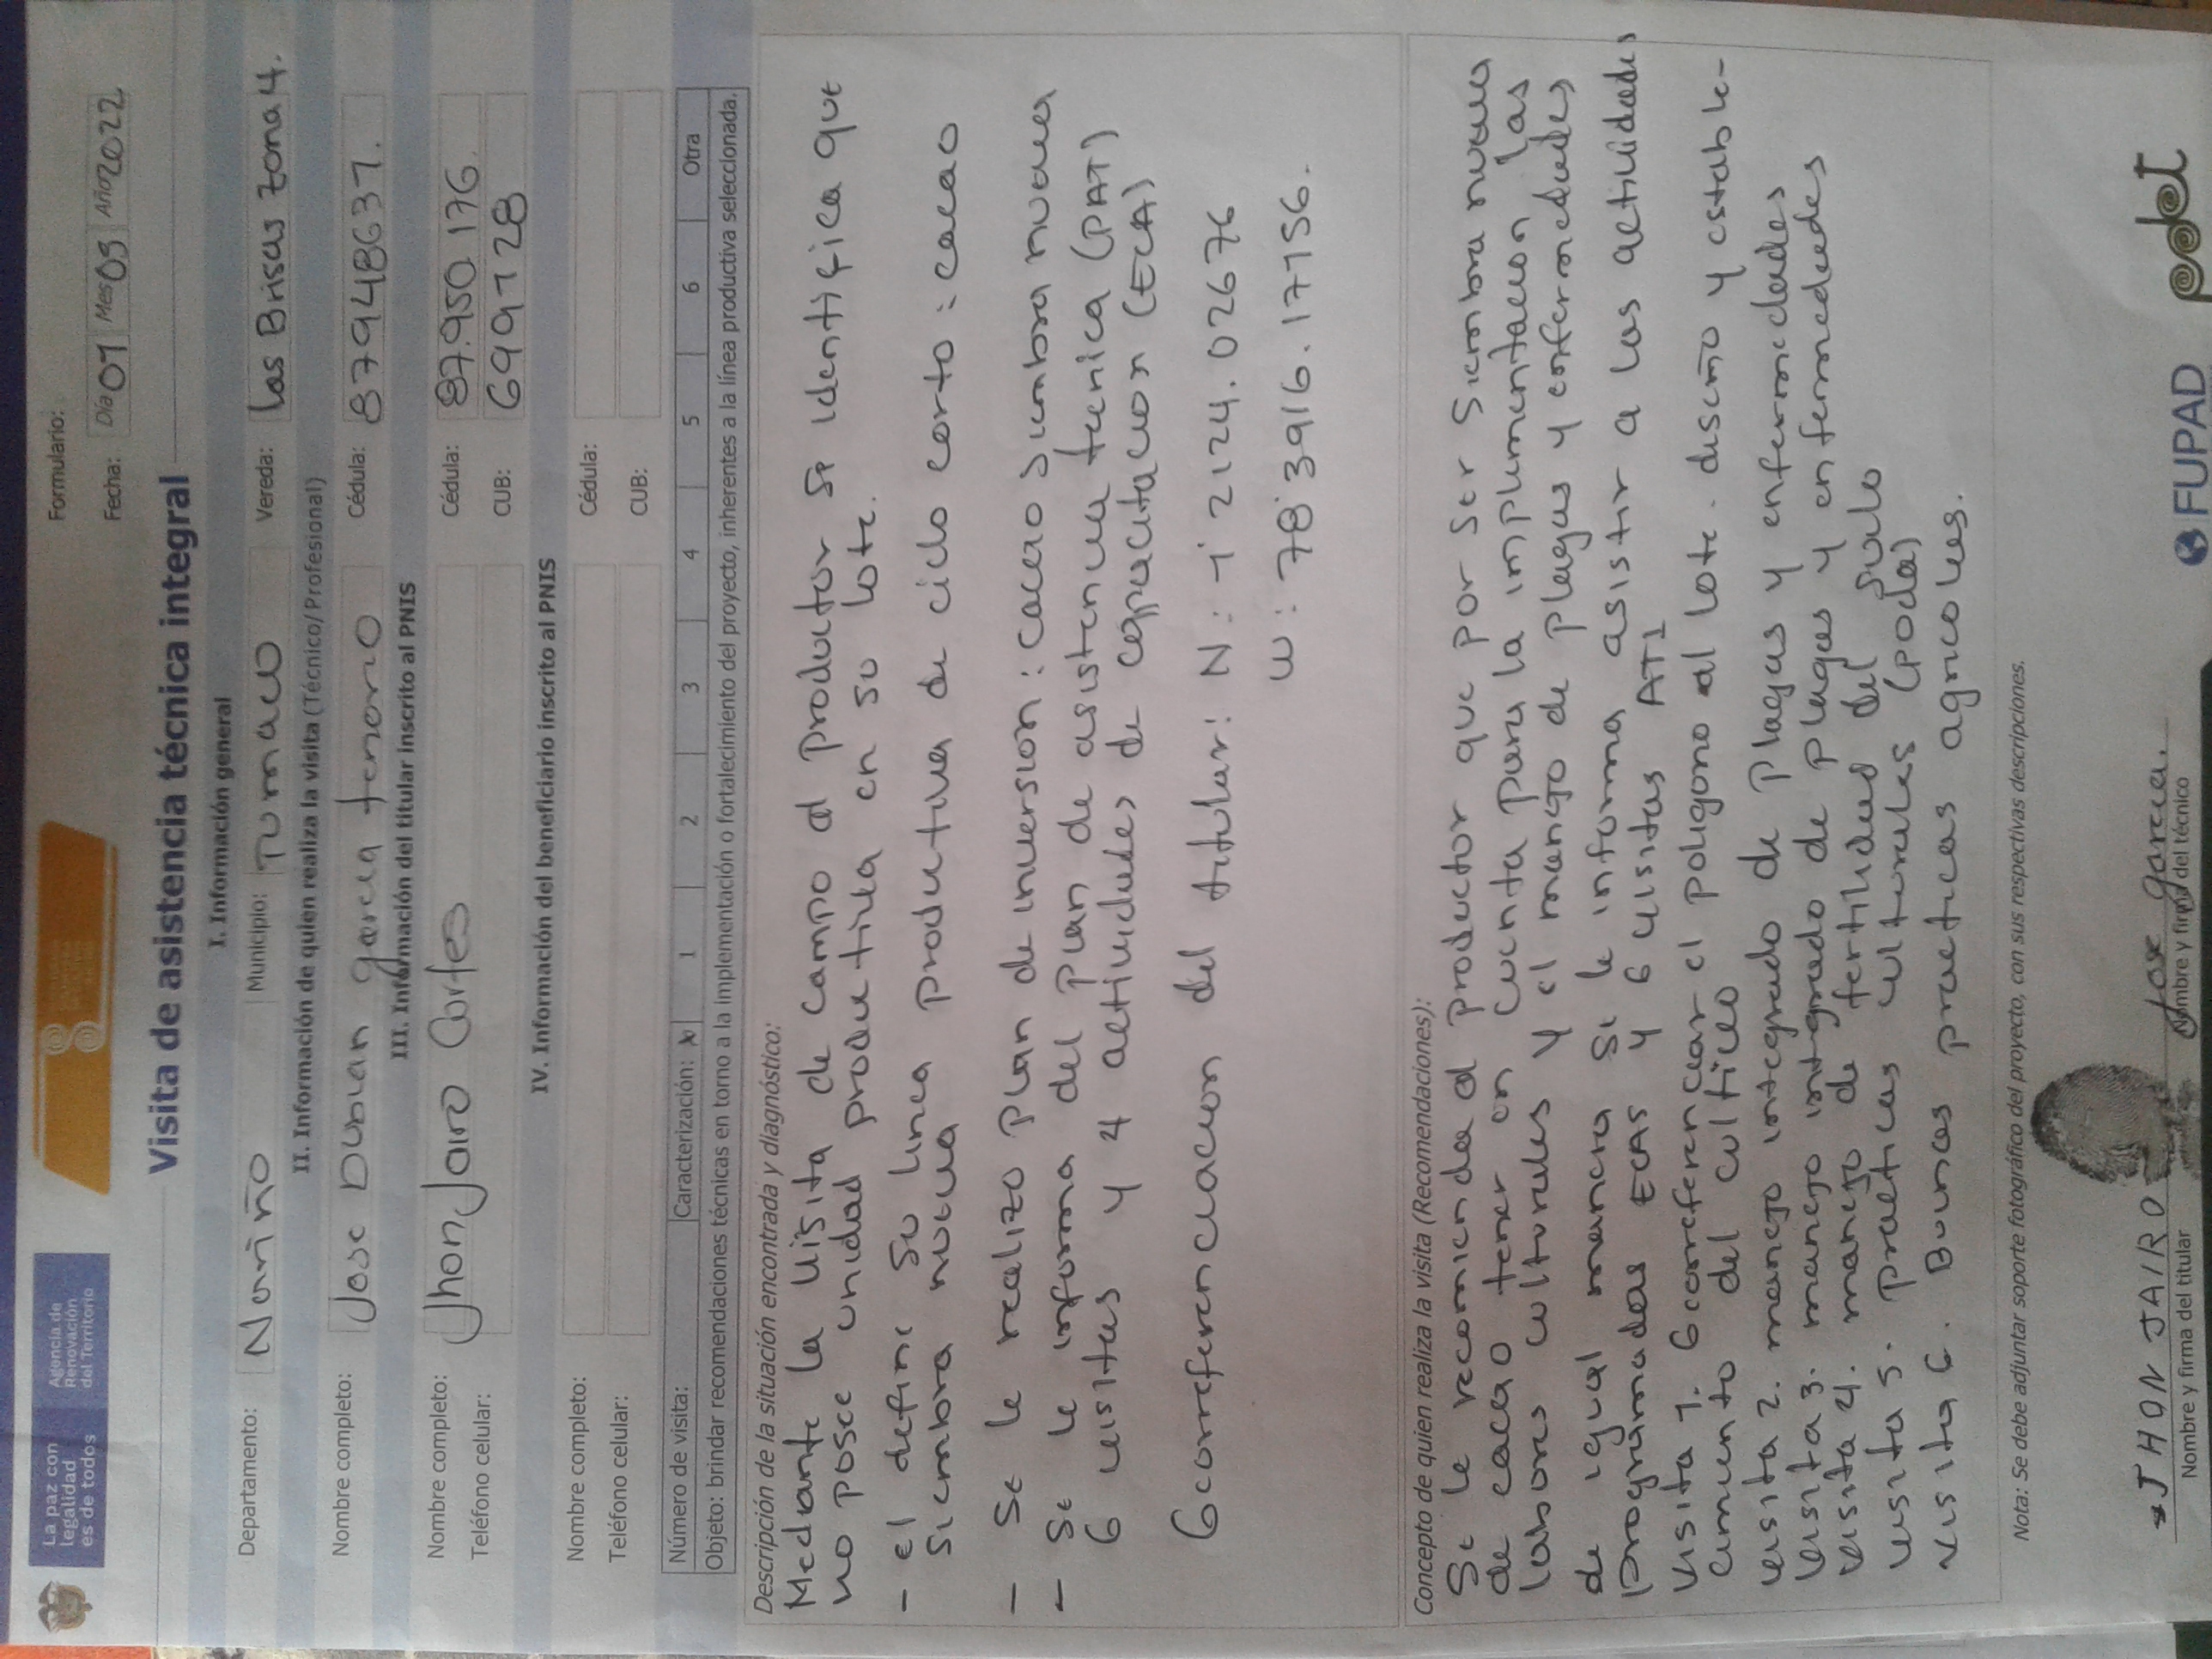 La paz con
legalidad
es de todos
Agencia de
Renovación
del Territorio
Formulario:
Fecha: Día 01 Mes 09 Año 2022
Visita de asistencia técnica integral
I. Información general
Departamento: Nariño Municipio: Tumaco Vereda: las Brisas zona 4.
II. Información de quien realiza la visita (Técnico/Profesional)
Nombre completo: Jose Duban garcia tenorio Cédula: 87948637.
III. Información del titular inscrito al PNIS
Nombre completo: Jhon Jairo Cortes Cédula: 87.950.176
Teléfono celular: CUB: 699728
IV. Información del beneficiario inscrito al PNIS
Nombre completo: Cédula:
Teléfono celular: CUB:
Número de visita: Caracterización: x 1 2 3 4 5 6 Otra
Objeto: brindar recomendaciones técnicas en torno a la implementación o fortalecimiento del proyecto, inherentes a la línea productiva seleccionada.
Descripción de la situación encontrada y diagnóstico:
Mediante la visita de campo al productor se identifica que
no posee unidad productiva en su lote.
- el define su linea productiva de ciclo corto: cacao
siembra nueva
- se le realizo plan de inversion: cacao siembra nueva
- se le informa del plan de asistencia tecnica (PAT)
6 visitas y 4 actividades de capacitacion (ECA)
Georreferenciacion del titular: N: 1° 2124.02676
W: 78°3916.17756.
Concepto de quien realiza la visita (Recomendaciones):
Se le recomienda al productor que por ser siembra nueva
de cacao tener en cuenta para la implementacion las
labores culturales y el manejo de plagas y enfermedades
de igual manera se le informa asistir a las actividades
programadas ECAS y 6 visitas ATI
Visita 1. Georreferenciar el poligono al lote. diseño y estable-
cimiento del cultivo
visita 2. manejo integrado de plagas y enfermedades
visita 3. manejo integrado de plagas y enfermedades
visita 4. manejo de fertilidad del suelo
visita 5. practicas culturales (poda)
visita 6. Buenas practicas agricolas.
Nota: Se debe adjuntar soporte fotográfico del proyecto, con sus respectivas descripciones.
JHON JAIRO
Nombre y firma del titular
Jose garcia.
Nombre y firma del técnico
FUPAD
pdet